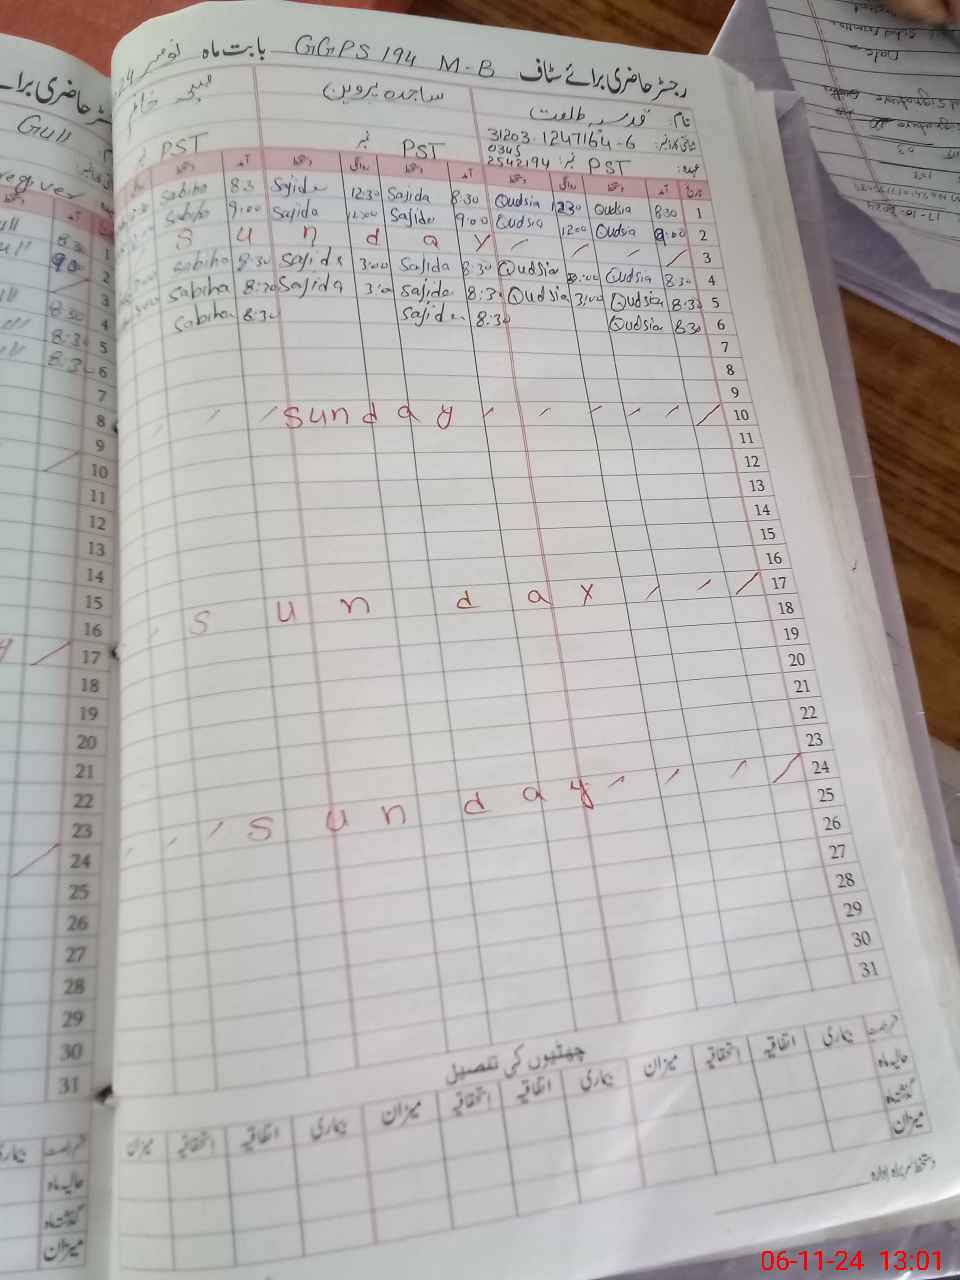 رجسٹر حاضری برائے سٹاف GGPS 194 M-B بابت ماہ نومبر
نام: قدسیہ طلعت ساجدہ پروین صبیحہ خانم
31203-1247164-6
0345
2542194 نمبر PST نمبر PST نمبر PST
1 8:30 Qudsia 12:30 Qudsia 8:30 Sajida 12:30 Sajida 8:3 Sabiha
2 9:00 Qudsia 12:00 Qudsia 9:00 Sajida 12:00 Sajida 9:00 Sabiha
3 Sunday
4 8:30 Qudsia Qudsia 8:30 Sajida 3:00 Sajida 8:30 Sabiha
5 8:30 Qudsia 3:00 Qudsia 8:30 Sajida 3:00 Sajida 8:30 Sabiha
6 8:30 Qudsia 8:30 Sajida 8:30 Sabiha
7
8
9
10 Sunday
11
12
13
14
15
16
17 Sunday
18
19
20
21
22
23
24 Sunday
25
26
27
28
29
30
31
چھٹیوں کی تفصیل
بیماری اتفاقیہ استحقاقیہ میزان بیماری اتفاقیہ استحقاقیہ میزان بیماری اتفاقیہ استحقاقیہ میزان
حالیہ ماہ
گذشتہ ماہ
میزان
دستخط سربراہ ادارہ
Gull
1 8:30
2 9:0
3
4 8:30
5 8:30
6 8:30
7
8
9
10
11
12
13
14
15
16
17
18
19
20
21
22
23
24
25
26
27
28
29
30
31
حالیہ ماہ
گذشتہ ماہ
میزان
Date
17-10-2024
06-11-24 13:01